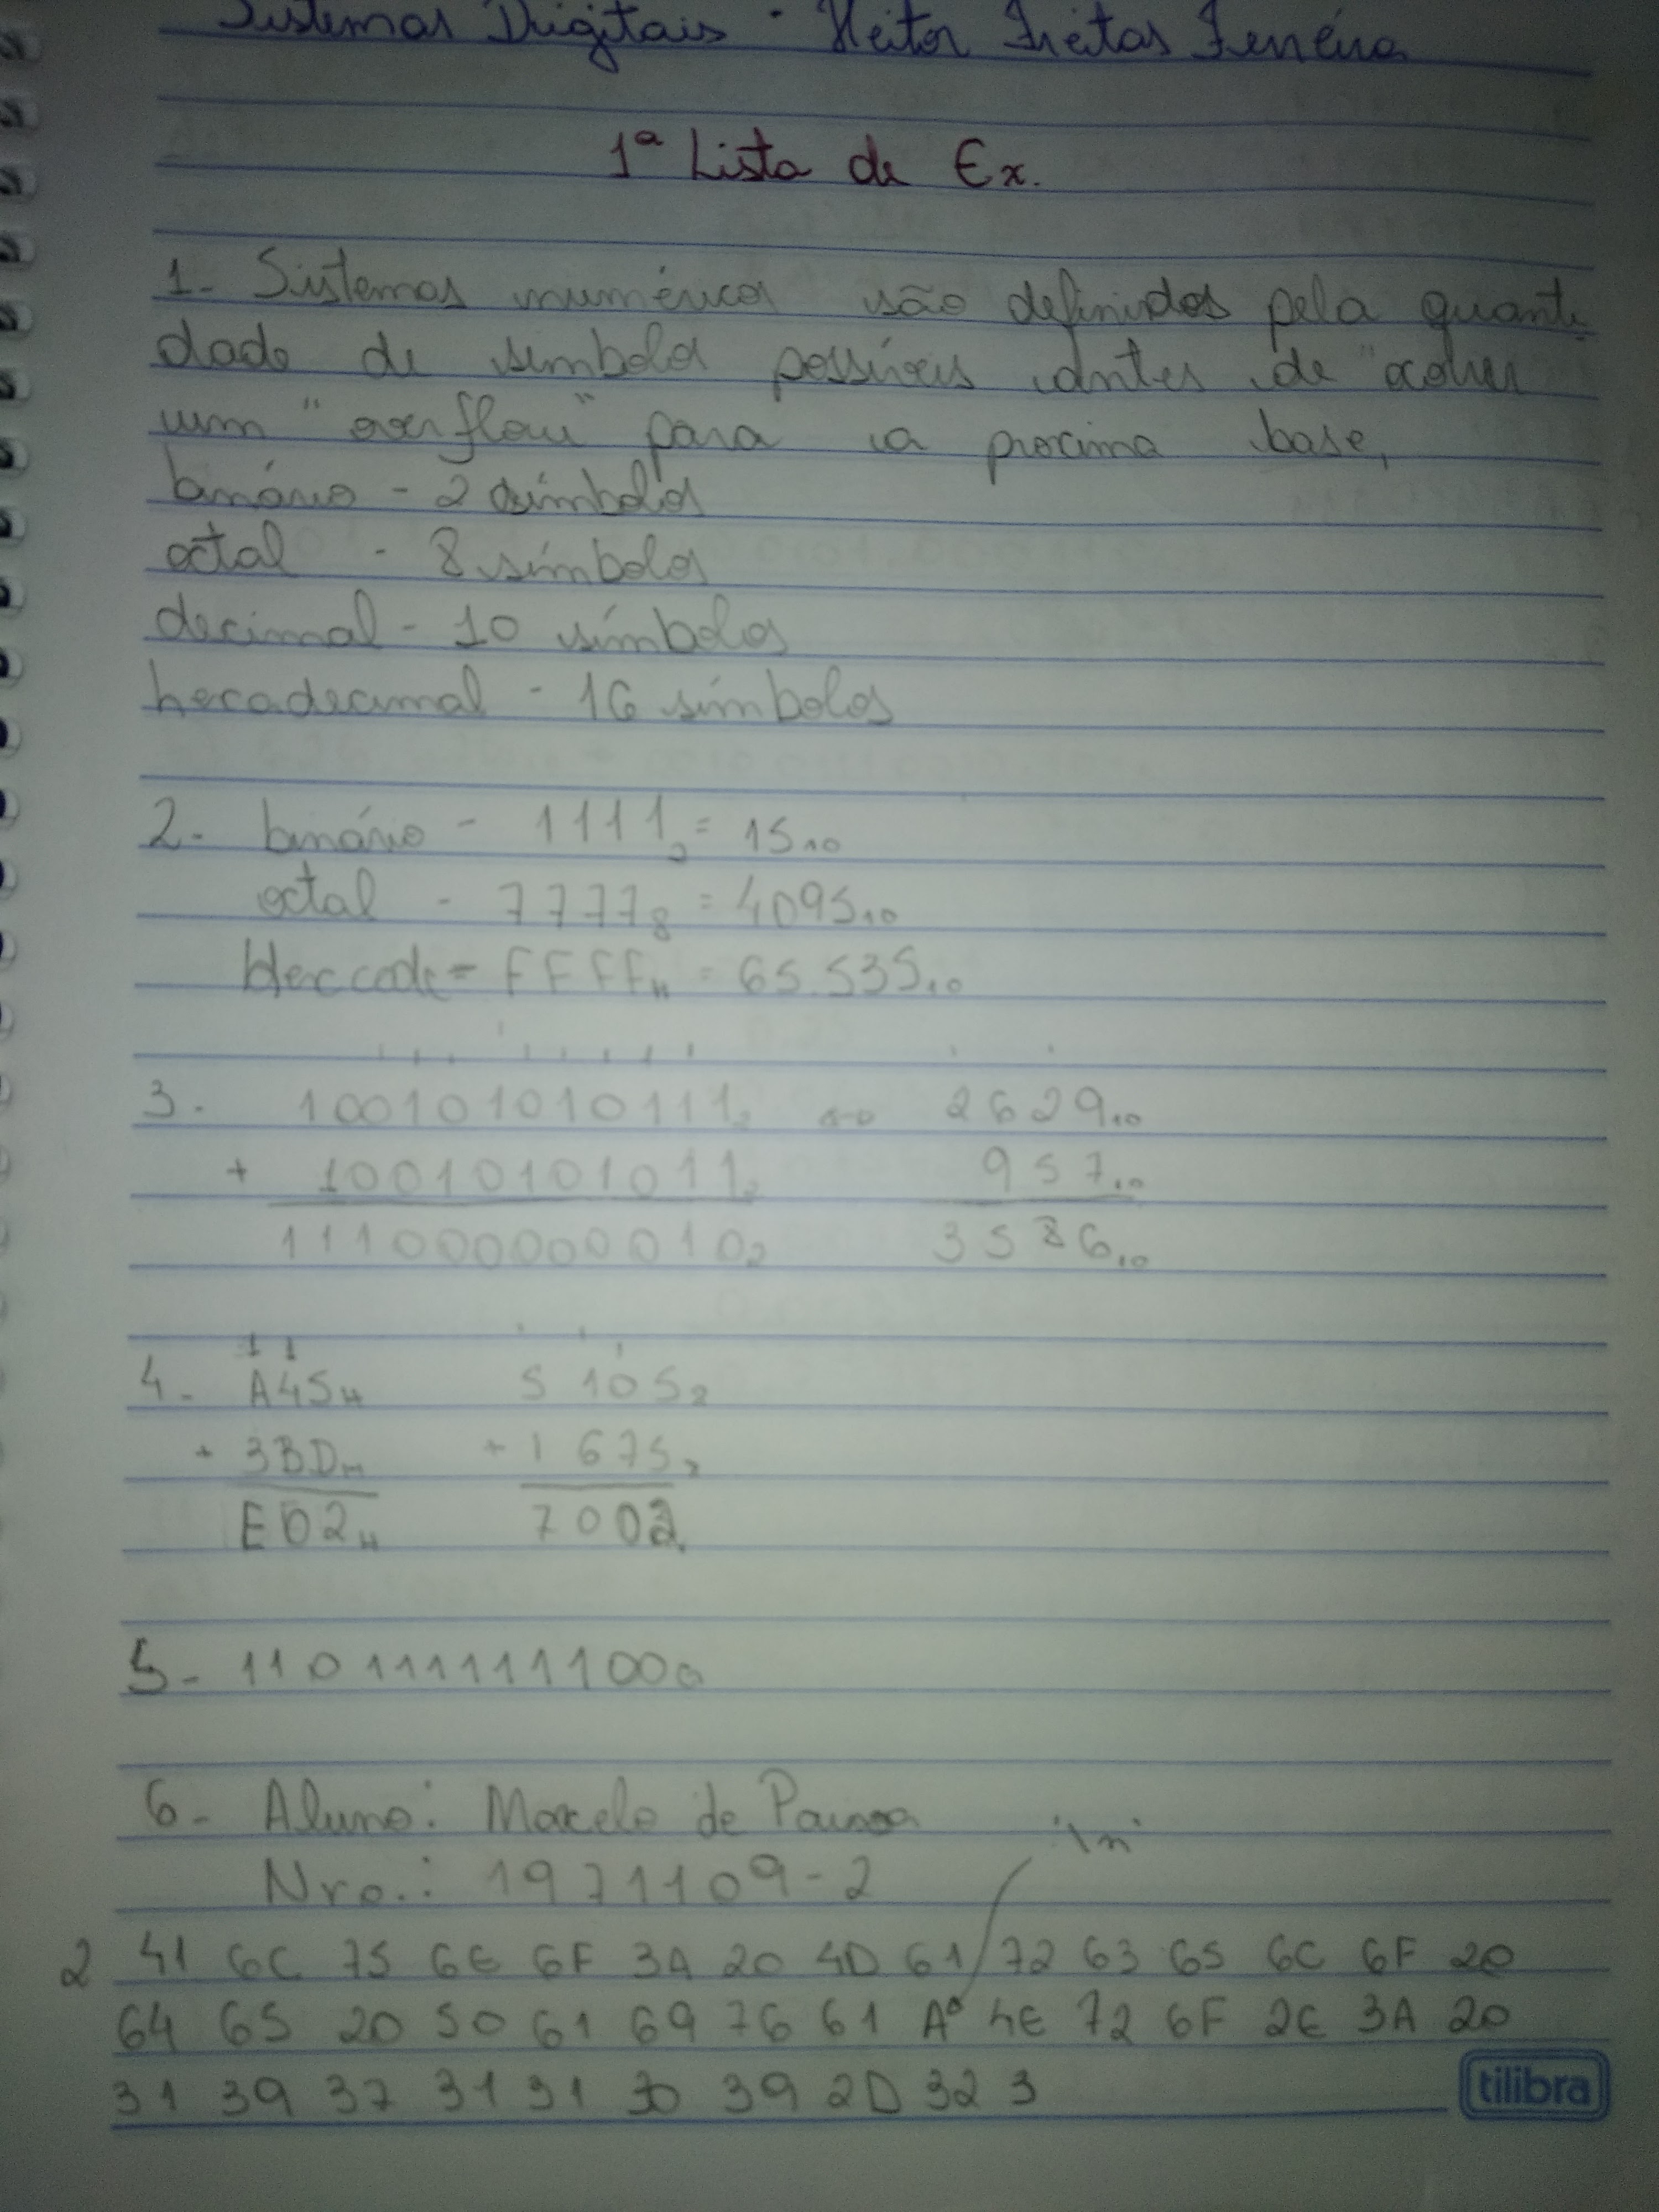 Sistemas Digitais - Heitor Freitas Ferreira
1ª Lista de Ex.
1- Sistemas numéricos são definidos pela quanti
dade de simbolos possíveis antes de
um "overflow" para a proxima base,
binário - 2 símbolos
octal - 8 símbolos
decimal - 10 símbolos
hexadecimal - 16 símbolos
2- binário - 1111₂ = 15₁₀
octal - 7777₈ = 4095₁₀
= FFFFH = 65.535₁₀
3- 100101010111₂ ↔ 2629₁₀
+ 10010101011₂ 957₁₀
1110000000010₂ 3586₁₀
1 1
4- A45H 5105₈
+ 3BDH + 1675₈
E02H 7002
5- 110111111111000
6- Aluno: Marcelo de Paiva
Nro.: 1971109-2 '\n'
2 41 6C 75 6E 6F 3A 20 4D 61 72 63 65 6C 6F 20
64 65 20 50 61 69 76 61 A⁰ 4E 72 6F 2E 3A 20
31 39 37 31 31 30 39 2D 32 3
tilibra